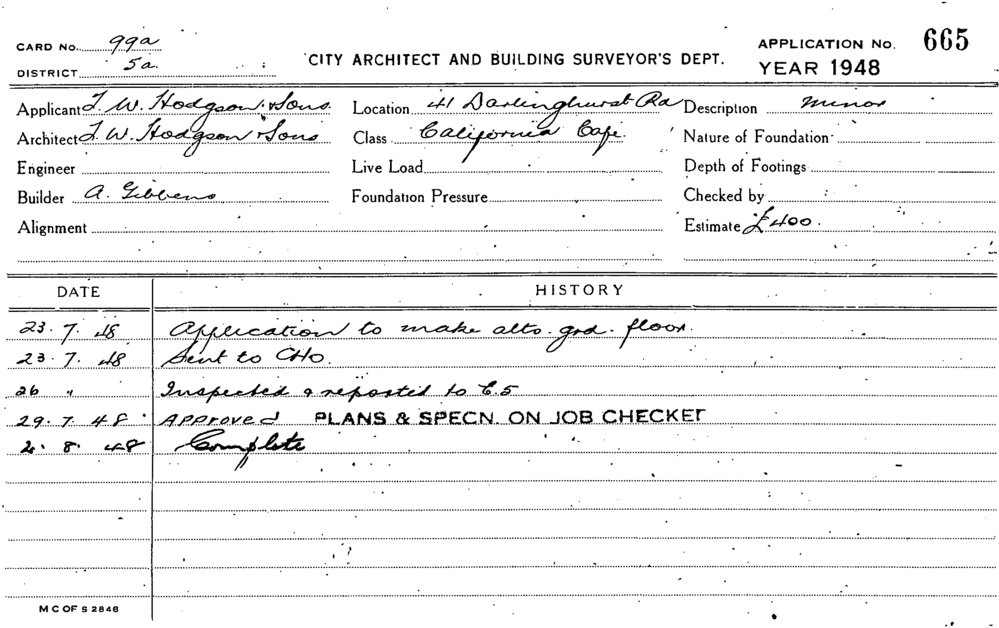 CARD No. 99a
DISTRICT 5a.
CITY ARCHITECT AND BUILDING SURVEYOR'S DEPT.
APPLICATION No. 665
YEAR 1948
Applicant T. W. Hodgson & Sons.
Architect T. W. Hodgson & Sons
Engineer
Builder A. Gibbens
Alignment
Location 41 Darlinghurst Rd
Class California Cafe.
Live Load
Foundation Pressure
Description minor
Nature of Foundation
Depth of Footings
Checked by
Estimate £400.
DATE HISTORY
23. 7. 48 Application to make alts. grd. floor.
23. 7. 48 Sent to CHO.
26 " Inspected & reported to C.5
29. 7. 48 Approved PLANS & SPECN. ON JOB CHECKET
2. 8. 48 Complete
M C OF S 2848